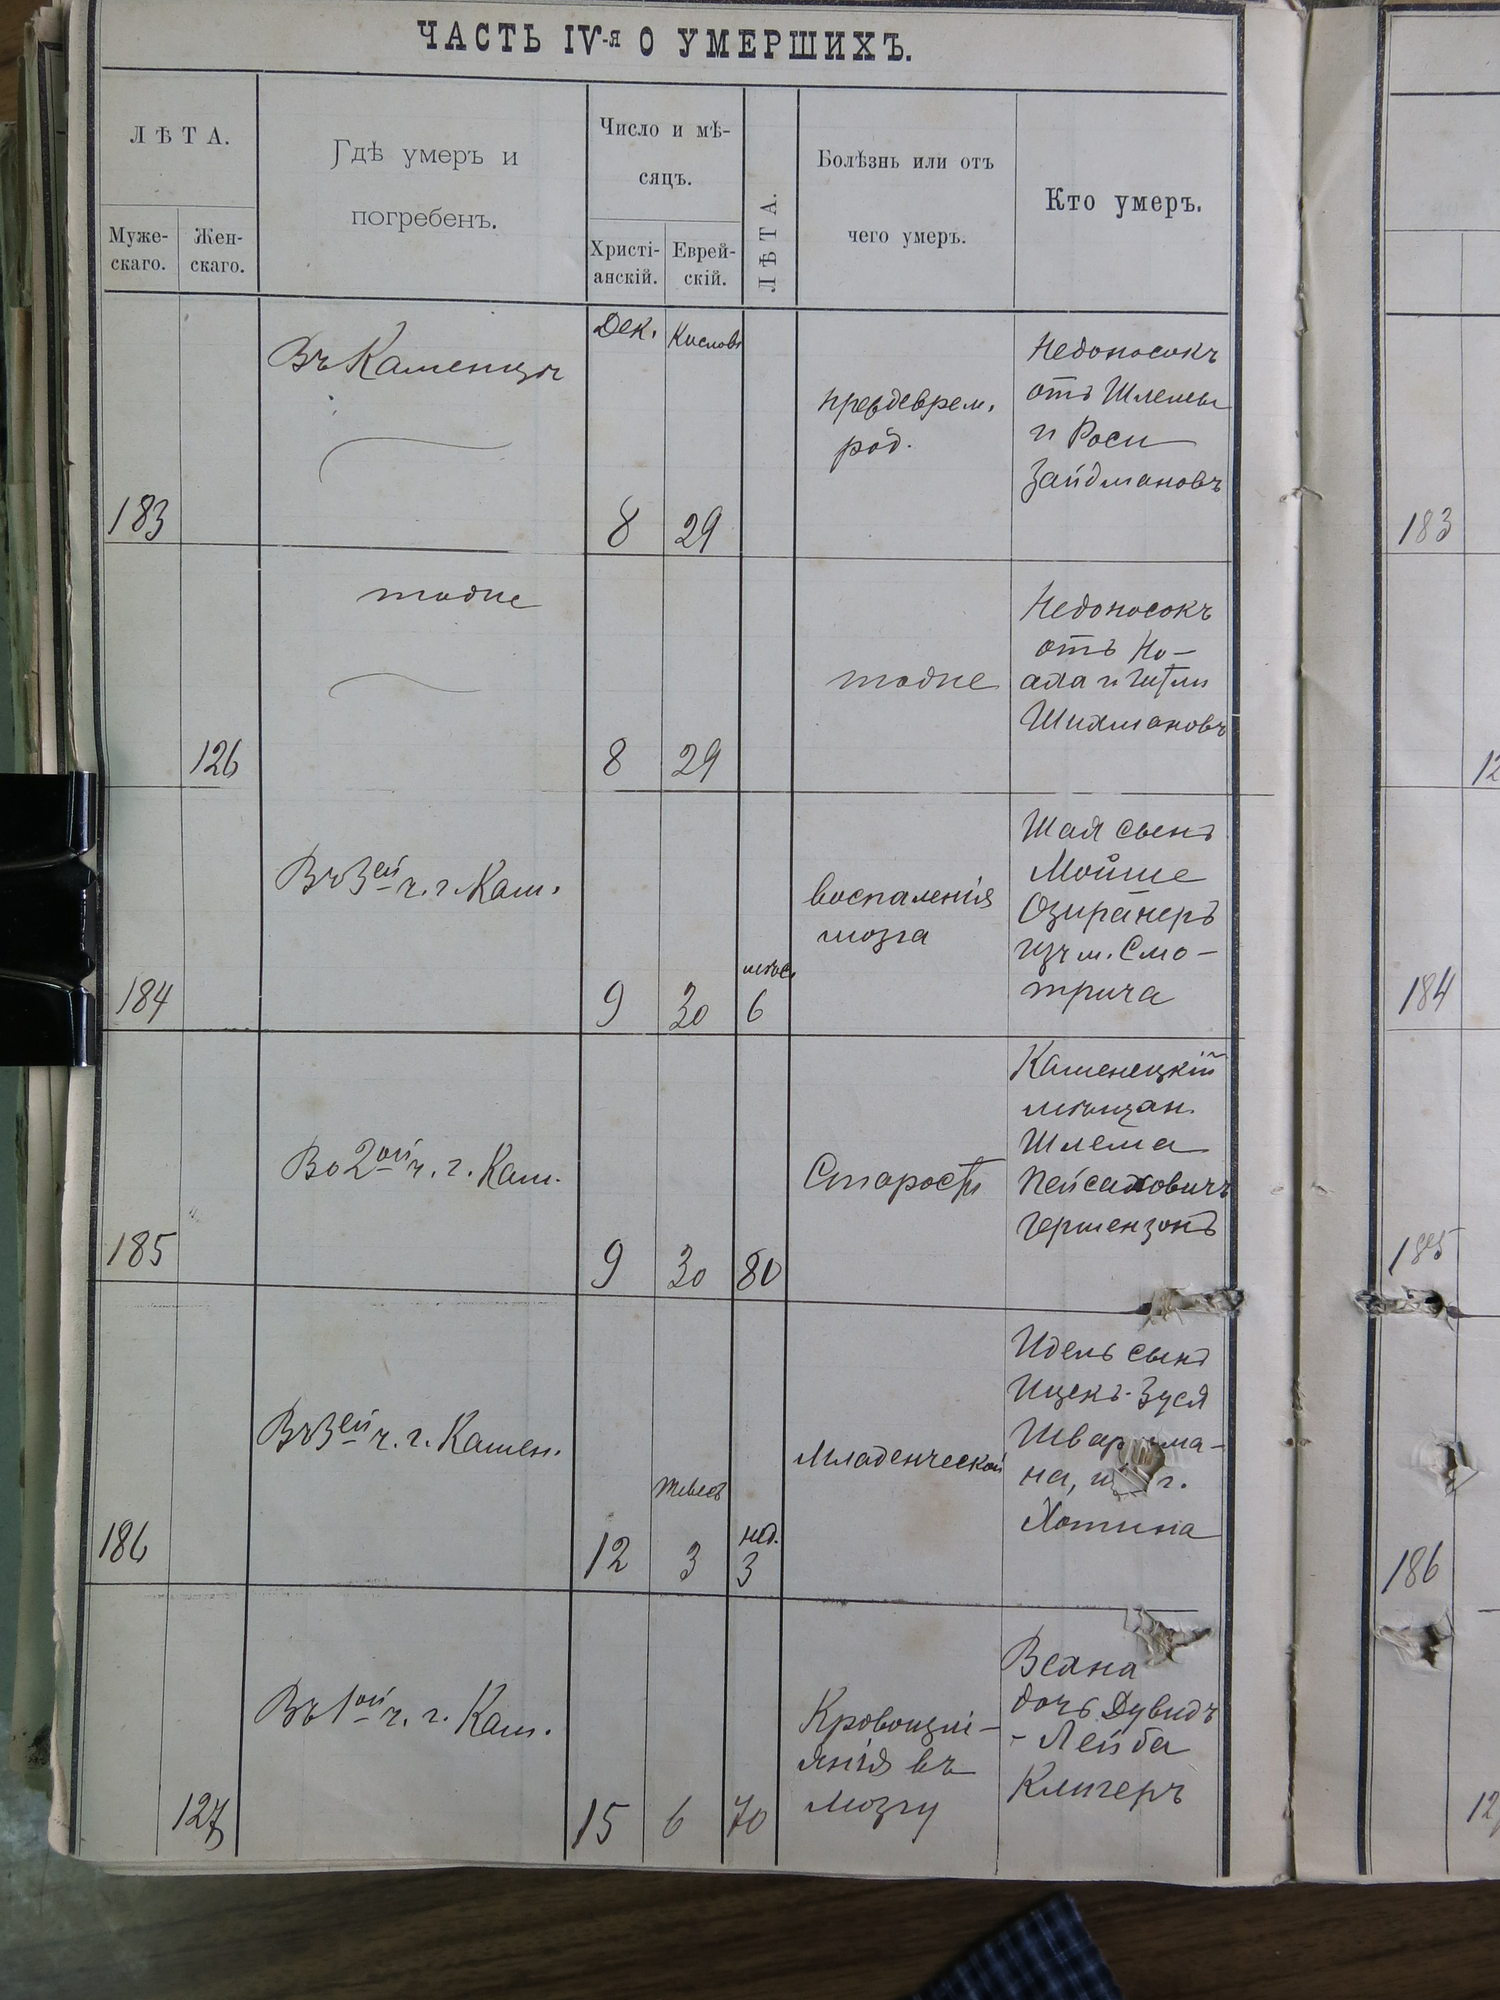 ЧАСТЬ IV-я О УМЕРШИХЪ.
ЛѢТА.
Муже-
скаго.
Жен-
скаго.
Гдѣ умеръ и
погребенъ.
Число и мѣ-
сяцъ.
Христі-
анскій.
Еврей-
скій.
ЛѢТА.
Болѣзнь или отъ
чего умеръ.
Кто умеръ.
183
Въ Каменцѣ
Дек.
8
Кислевъ
29
преждеврем.
род.
Недоносокъ
отъ Шлемы
и Роси
Зайдмановъ
183
126
тоже
8
29
тоже
Недоносокъ
отъ Но-
аха и Гитли
Шихмановъ
12
184
Въ 3ей ч. г. Кам.
9
30
мѣсе.
6
воспаленія
мозга
Шая сынъ
Мойше
Озиранеръ
изъ м. Смо-
трича
184
185
Во 2ой ч. г. Кам.
9
30
80
Старости
Каменецкій
мѣщан.
Шлема
Пейсаховичъ
Гершензонъ
185
186
Въ 3ей ч. г. Камен.
12
Тевесъ
3
нед.
3
Младенческой
Идель сынъ
Ицекъ-Зуся
на, г.
Хотина
186
127
Въ 1ой ч. г. Кам.
15
6
70
Кровоизлі-
янія въ
мозгу
дочь Дувидъ
-Лейба
Клигеръ
12